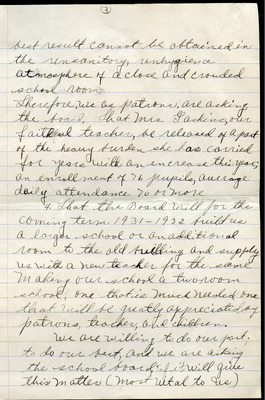 3
best result cannot be obtained in
the unsanitory, unhygience
atmosphere of a close and crowded
school room.
Therefore, we as patrons, are asking
the board, that Mrs Gaskins, our
faithful teacher, be released of a part
of the heavy burden she has carried
for years with an increase this year;
an enrollment of 76 pupils, average
daily attendance 70 or more
4. That the Board will for the
coming term 1931-1932 build us
a larger school or an additional
room to the old building and supply
us with a new teacher for the same
making our school a two room
school, one that is much needed one
that will be greatly appreciated by
patrons, teacher, and children.
We are willing to do our part,
to do our best, and we are asking
the school board, if it will give
this matter (most vital to us)